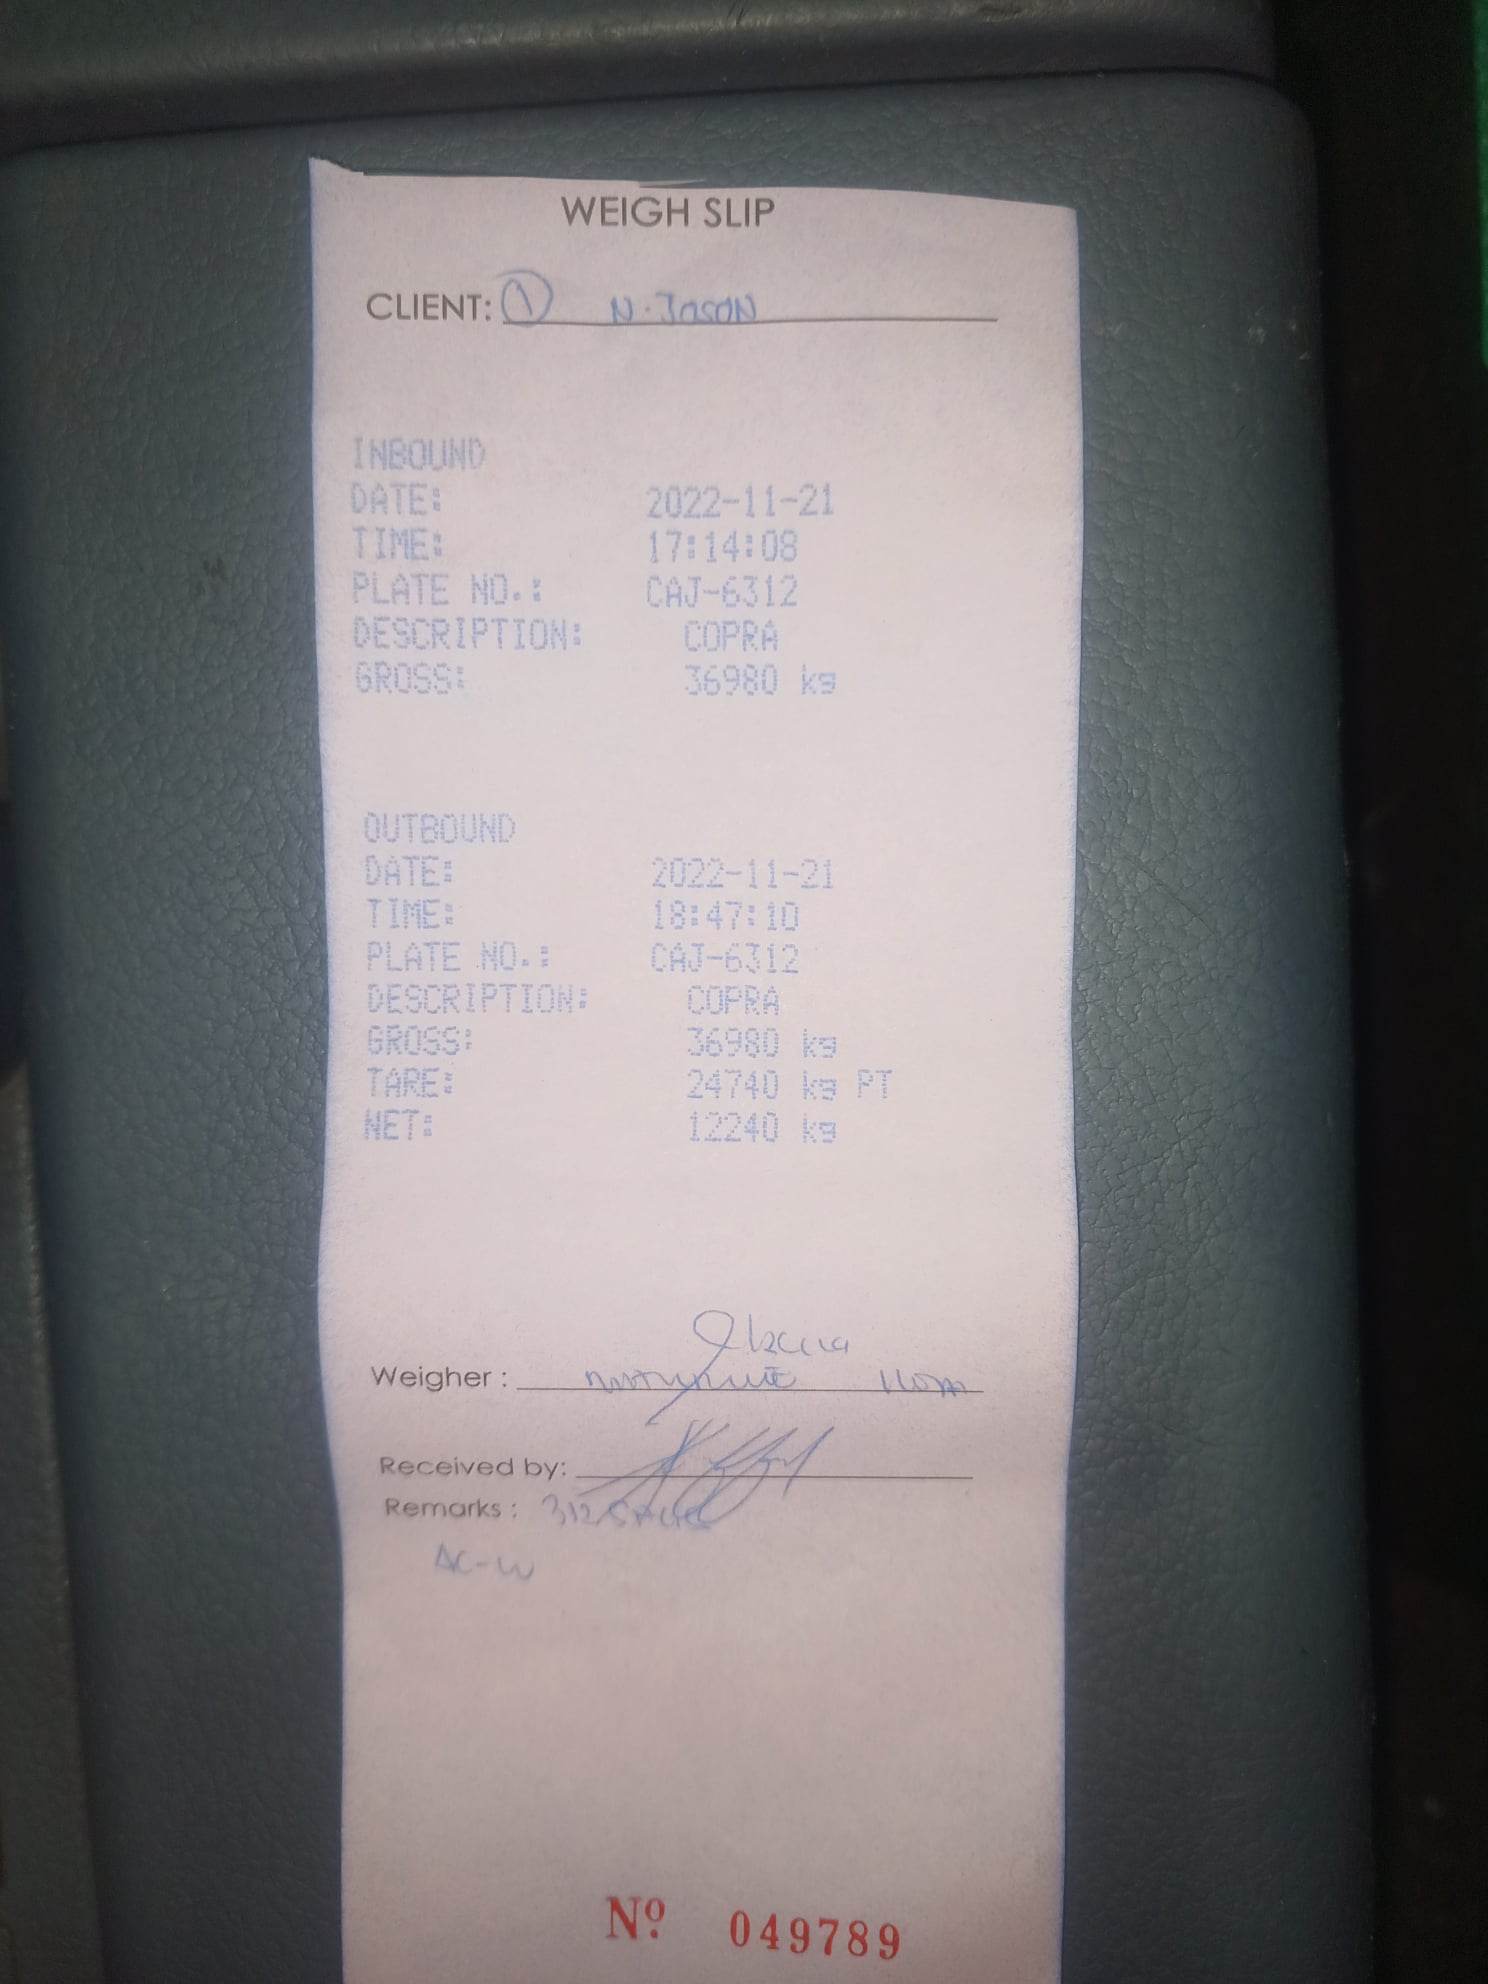 WEIGH SLIP
CLIENT: 1 N. JASON
INBOUND
DATE: 2022-11-21
TIME: 17:14:08
PLATE NO.: CAJ-6312
DESCRIPTION: COPRA
GROSS: 36980 kg
OUTBOUND
DATE: 2022-11-21
TIME: 18:47:10
PLATE NO.: CAJ-6312
DESCRIPTION: COPRA
GROSS: 36980 kg
TARE: 24740 kg PT
NET: 12240 kg
Weigher :
Received by:
Remarks : 312 SACKS
AC-W
Nº 049789